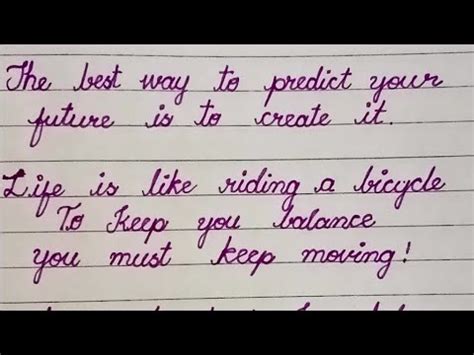 The best way to predict your
future is to create it.
Life is like riding a bicycle
To Keep you balance
you must keep moving!